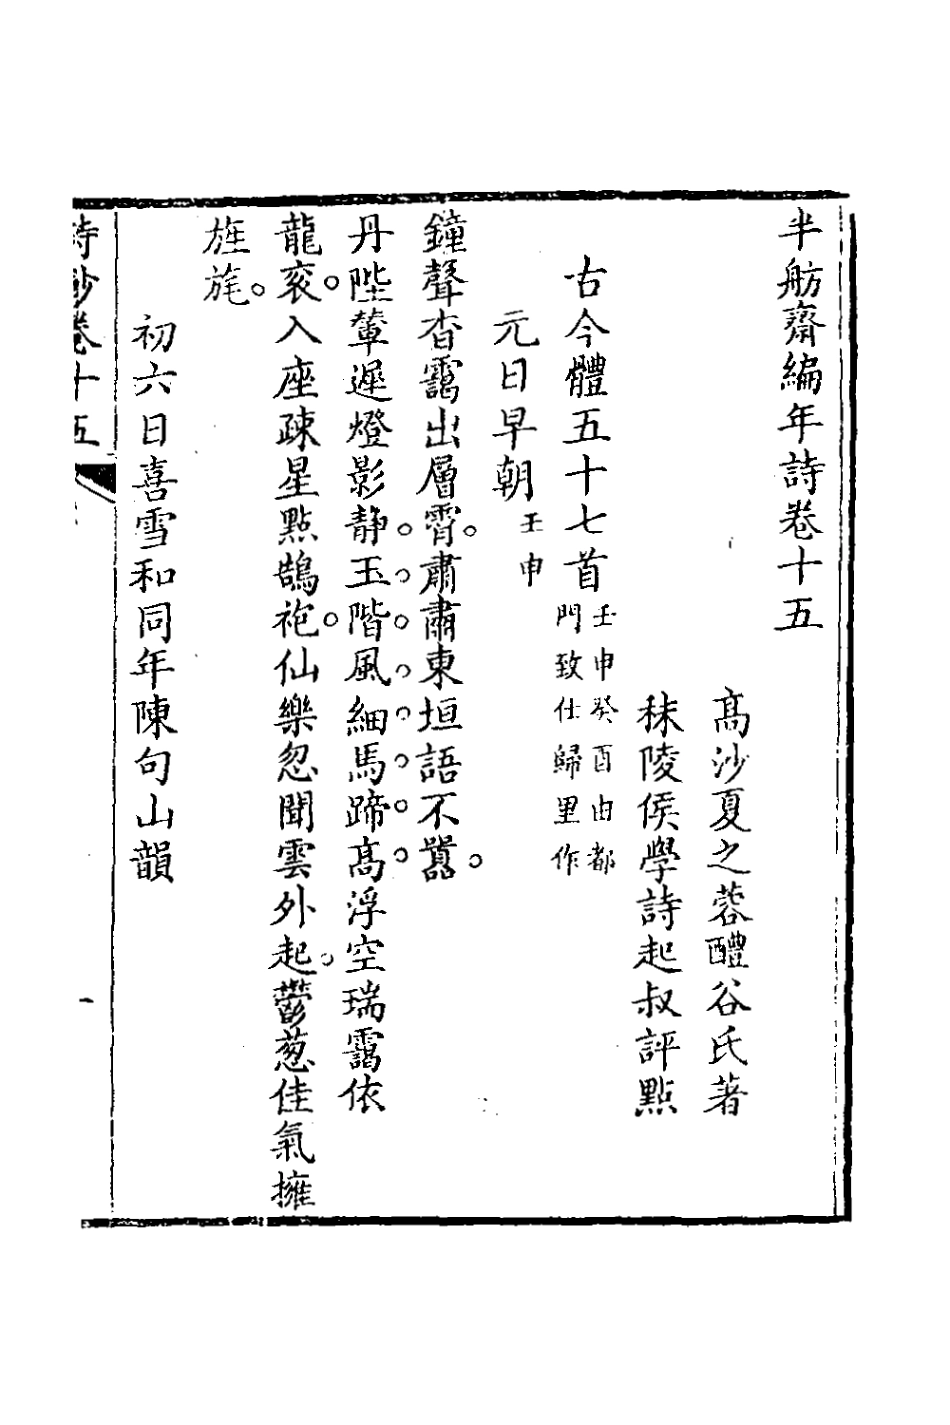 半舫齋編年詩卷十五
高沙夏之蓉醴谷氏著
秣陵侯學詩起叔評點
古今體五十七首壬申癸酉由都
門致仕歸里作
元日早朝壬申
鐘聲杳靄出層霄。肅肅東垣語不囂。
丹陛輦遲燈影靜玉階風細馬蹄高浮空瑞靄依
龍袞入座疎星點鵠袍仙樂忽聞雲外起鬱葱佳氣擁
旌旄。
初六日喜雪和同年陳句山韻
詩鈔卷十五
一